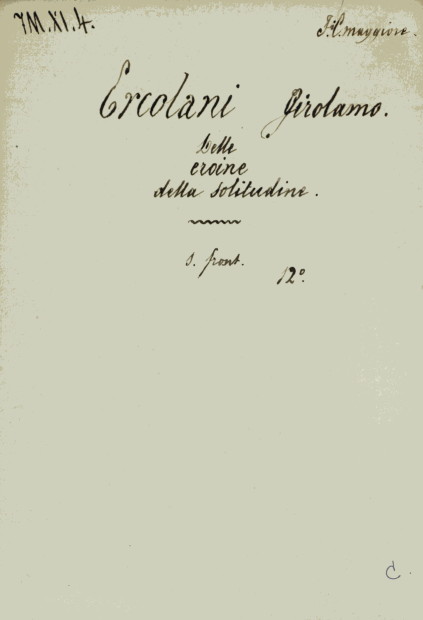 7M.XI.4.
maggiore.
Ercolani Girolamo.
Delle
eroine
della solitudine.
s. front.
12°.
C.